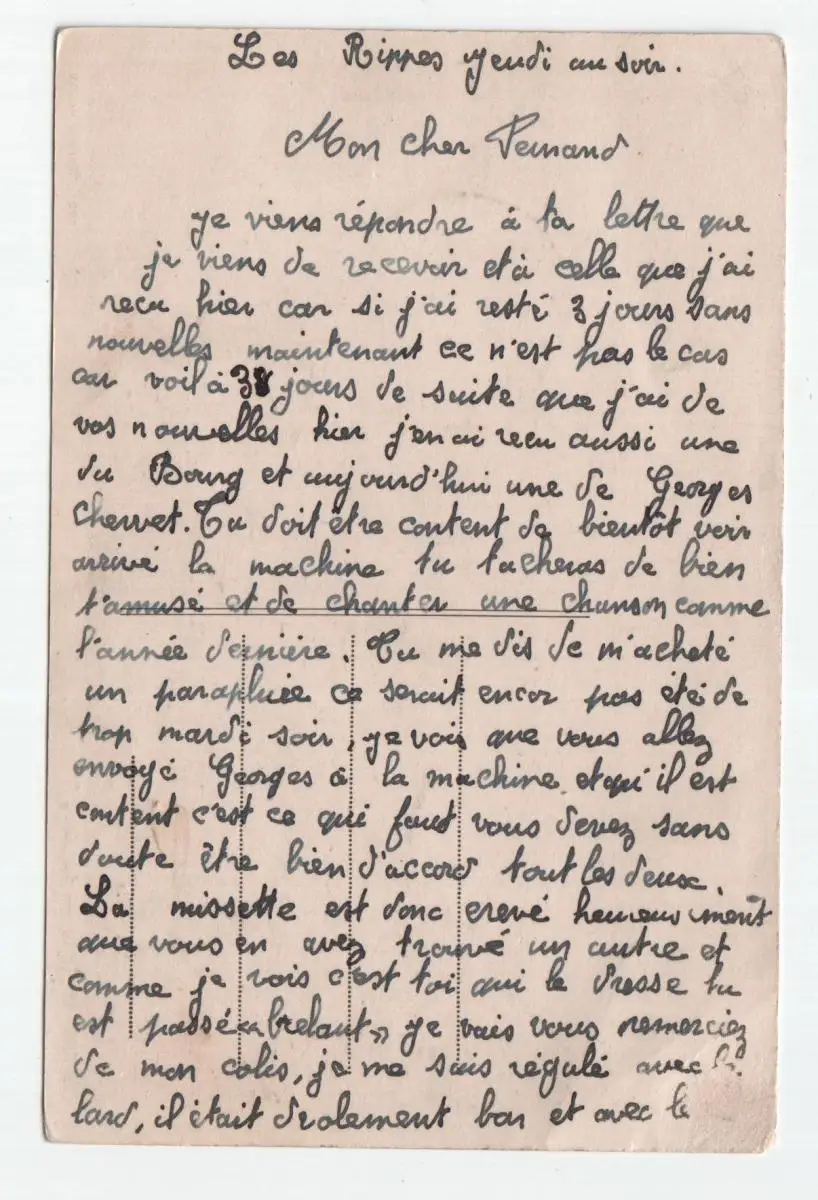 Les Rippes jeudi au soir.
Mon cher Fernand
je viens répondre à ta lettre que
je viens de recevoir et à celle que j'ai
reçu hier car si j'ai resté 3 jours sans
nouvelles maintenant ce n'est pas le cas
car voilà 3 jours de suite que j'ai de
vos nouvelles hier j'en ai reçu aussi une
du Bourg et aujourd'hui une de Georges
Chervet. Tu doit être content de bientôt voir
arrivé la machine tu tacheras de bien
t'amusé et de chanter une chanson comme
l'année dernière. Tu me dis de m'acheté
un parapluie ce serait encor pas été de
trop mardi soir, je vois que vous allez
envoyé Georges à la machine et qu'il est
content c'est ce qui faut vous devez sans
doute être bien d'accord tout les deux.
La missette est donc crevé heureusement
que vous en avez trouvé un autre et
comme je vois c'est toi qui le dresse tu
est passé "brelaut" je vais vous remerciez
de mon colis, je me suis régulé avec
lard, il était drolement bon et avec le